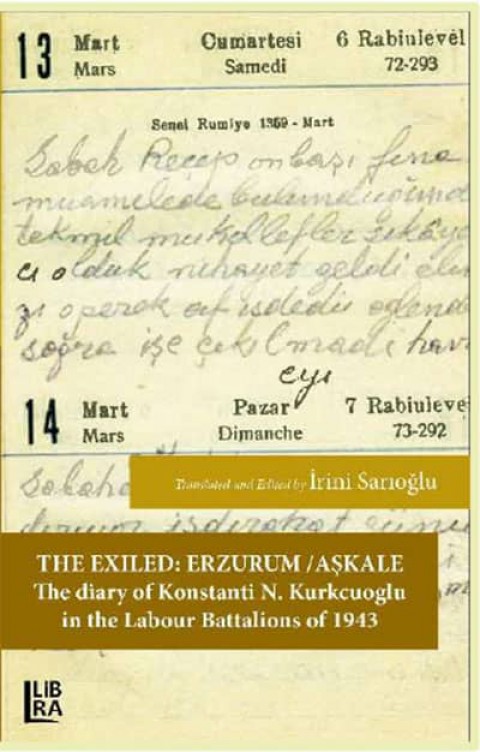 13 Mart Cumartesi 6 Rabiulevêl
Mars Samedi 72-293
Senei Rumiye 1359 - Mart
Sabah Recep onbaşı fena
muamelede bulunduğund
tekmil mukellefler şikâye
cı olduk nihayet geldi elim
zi operek af isdedi oglende
soğra işe çıkılmadi hava
eyi
14 Mart Pazar 7 Rabiuleve
Mars Dimanche 73-292
Sabah
Translated and Edited by İrini Sarıoğlu
THE EXILED: ERZURUM /AŞKALE
The diary of Konstanti N. Kurkcuoglu
in the Labour Battalions of 1943
LIB
RA